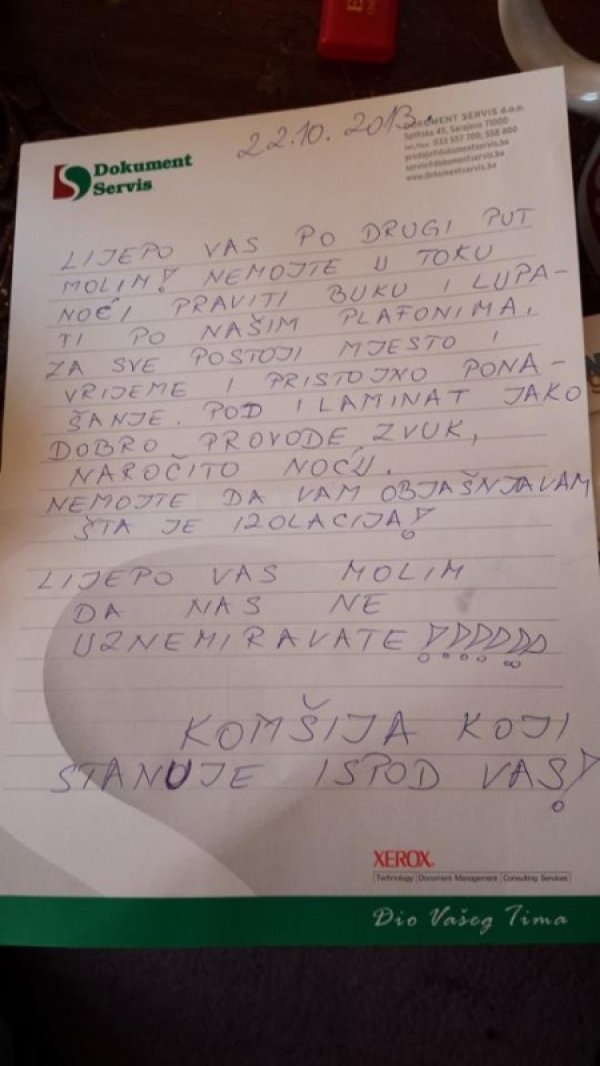 Dokument
Servis
22.10. 2013.
DOKUMENT SERVIS d.o.o.
Splitska 45, Sarajevo 71000
tel./fax. 033 557 700; 556 800
prodaja@dokumentservis.ba
servis@dokumentservis.ba
www.dokumentservis.ba
LIJEPO VAS PO DRUGI PUT
MOLIM! NEMOJTE U TOKU
NOĆI PRAVITI BUKU I LUPA-
TI PO NAŠIM PLAFONIMA,
ZA SVE POSTOJI MJESTO I
VRIJEME I PRISTOJNO PONA-
ŠANJE. POD I LAMINAT JAKO
DOBRO PROVODE ZVUK,
NAROČITO NOĆU.
NEMOJTE DA VAM OBJAŠNJAVAM
ŠTA JE IZOLACIJA!
LIJEPO VAS MOLIM
DA NAS NE
UZNEMIRAVATE !!!!!!
KOMŠIJA KOJI
STANUJE ISPOD VAS!
XEROX
Technology | Document Management | Consulting Services
Dio Vašeg Tima